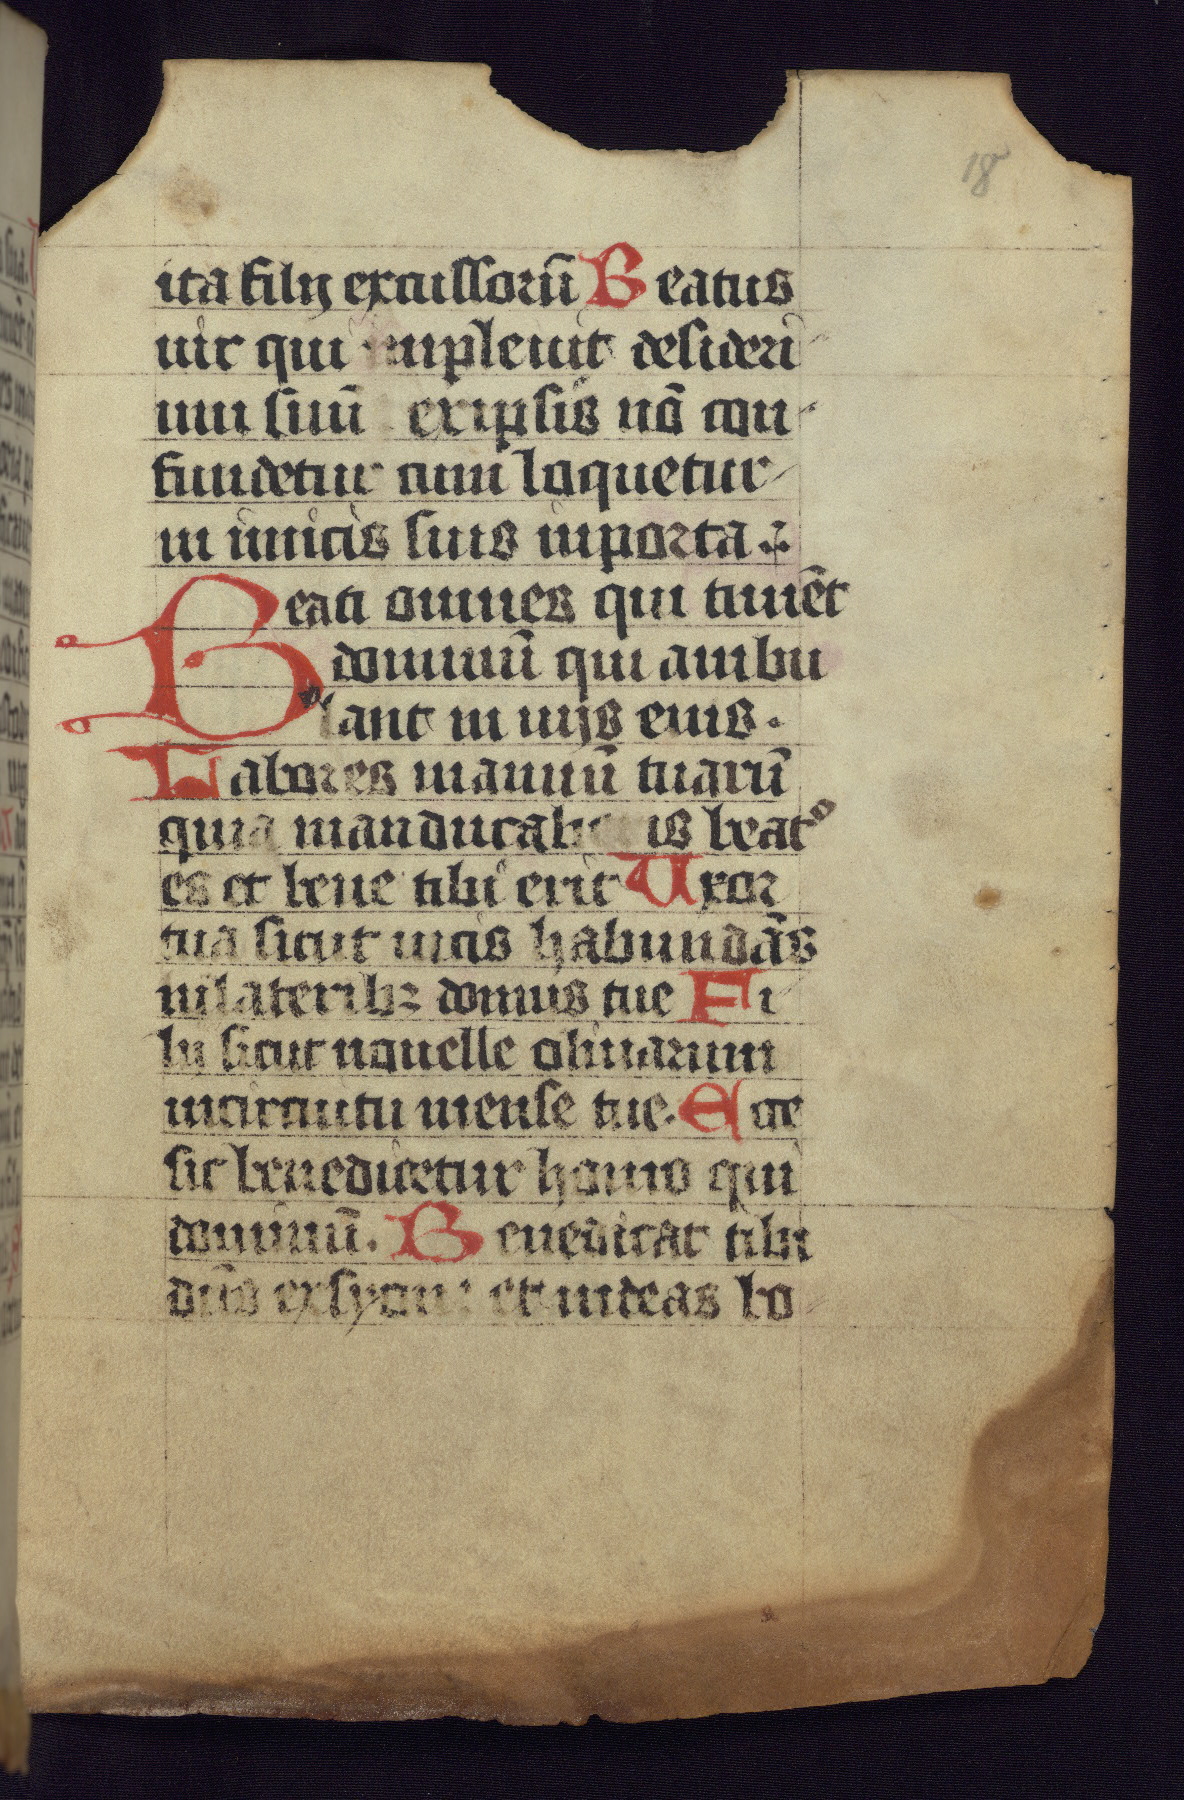 18
ita filij excussorū Beatus
uir qui impleuit desideri
um suū exipsis nō con
fundetur cum loquetur
in imicis suis inporta
Beati omnes qui timēt
dominū qui ambu
lant in uijs eius.
Labores manuū tuarū
quia manducabis beat⁹
es et bene tibi erit Uxor
tua sicut uitis habundās
inlaterib; domus tue Fi
lii sicut nouelle oliuarum
incircuitu mense tue. Ecce
sic benedicetur homo qui
dominū. Benedicat tibi
dn̄s exsyon et uideas bo